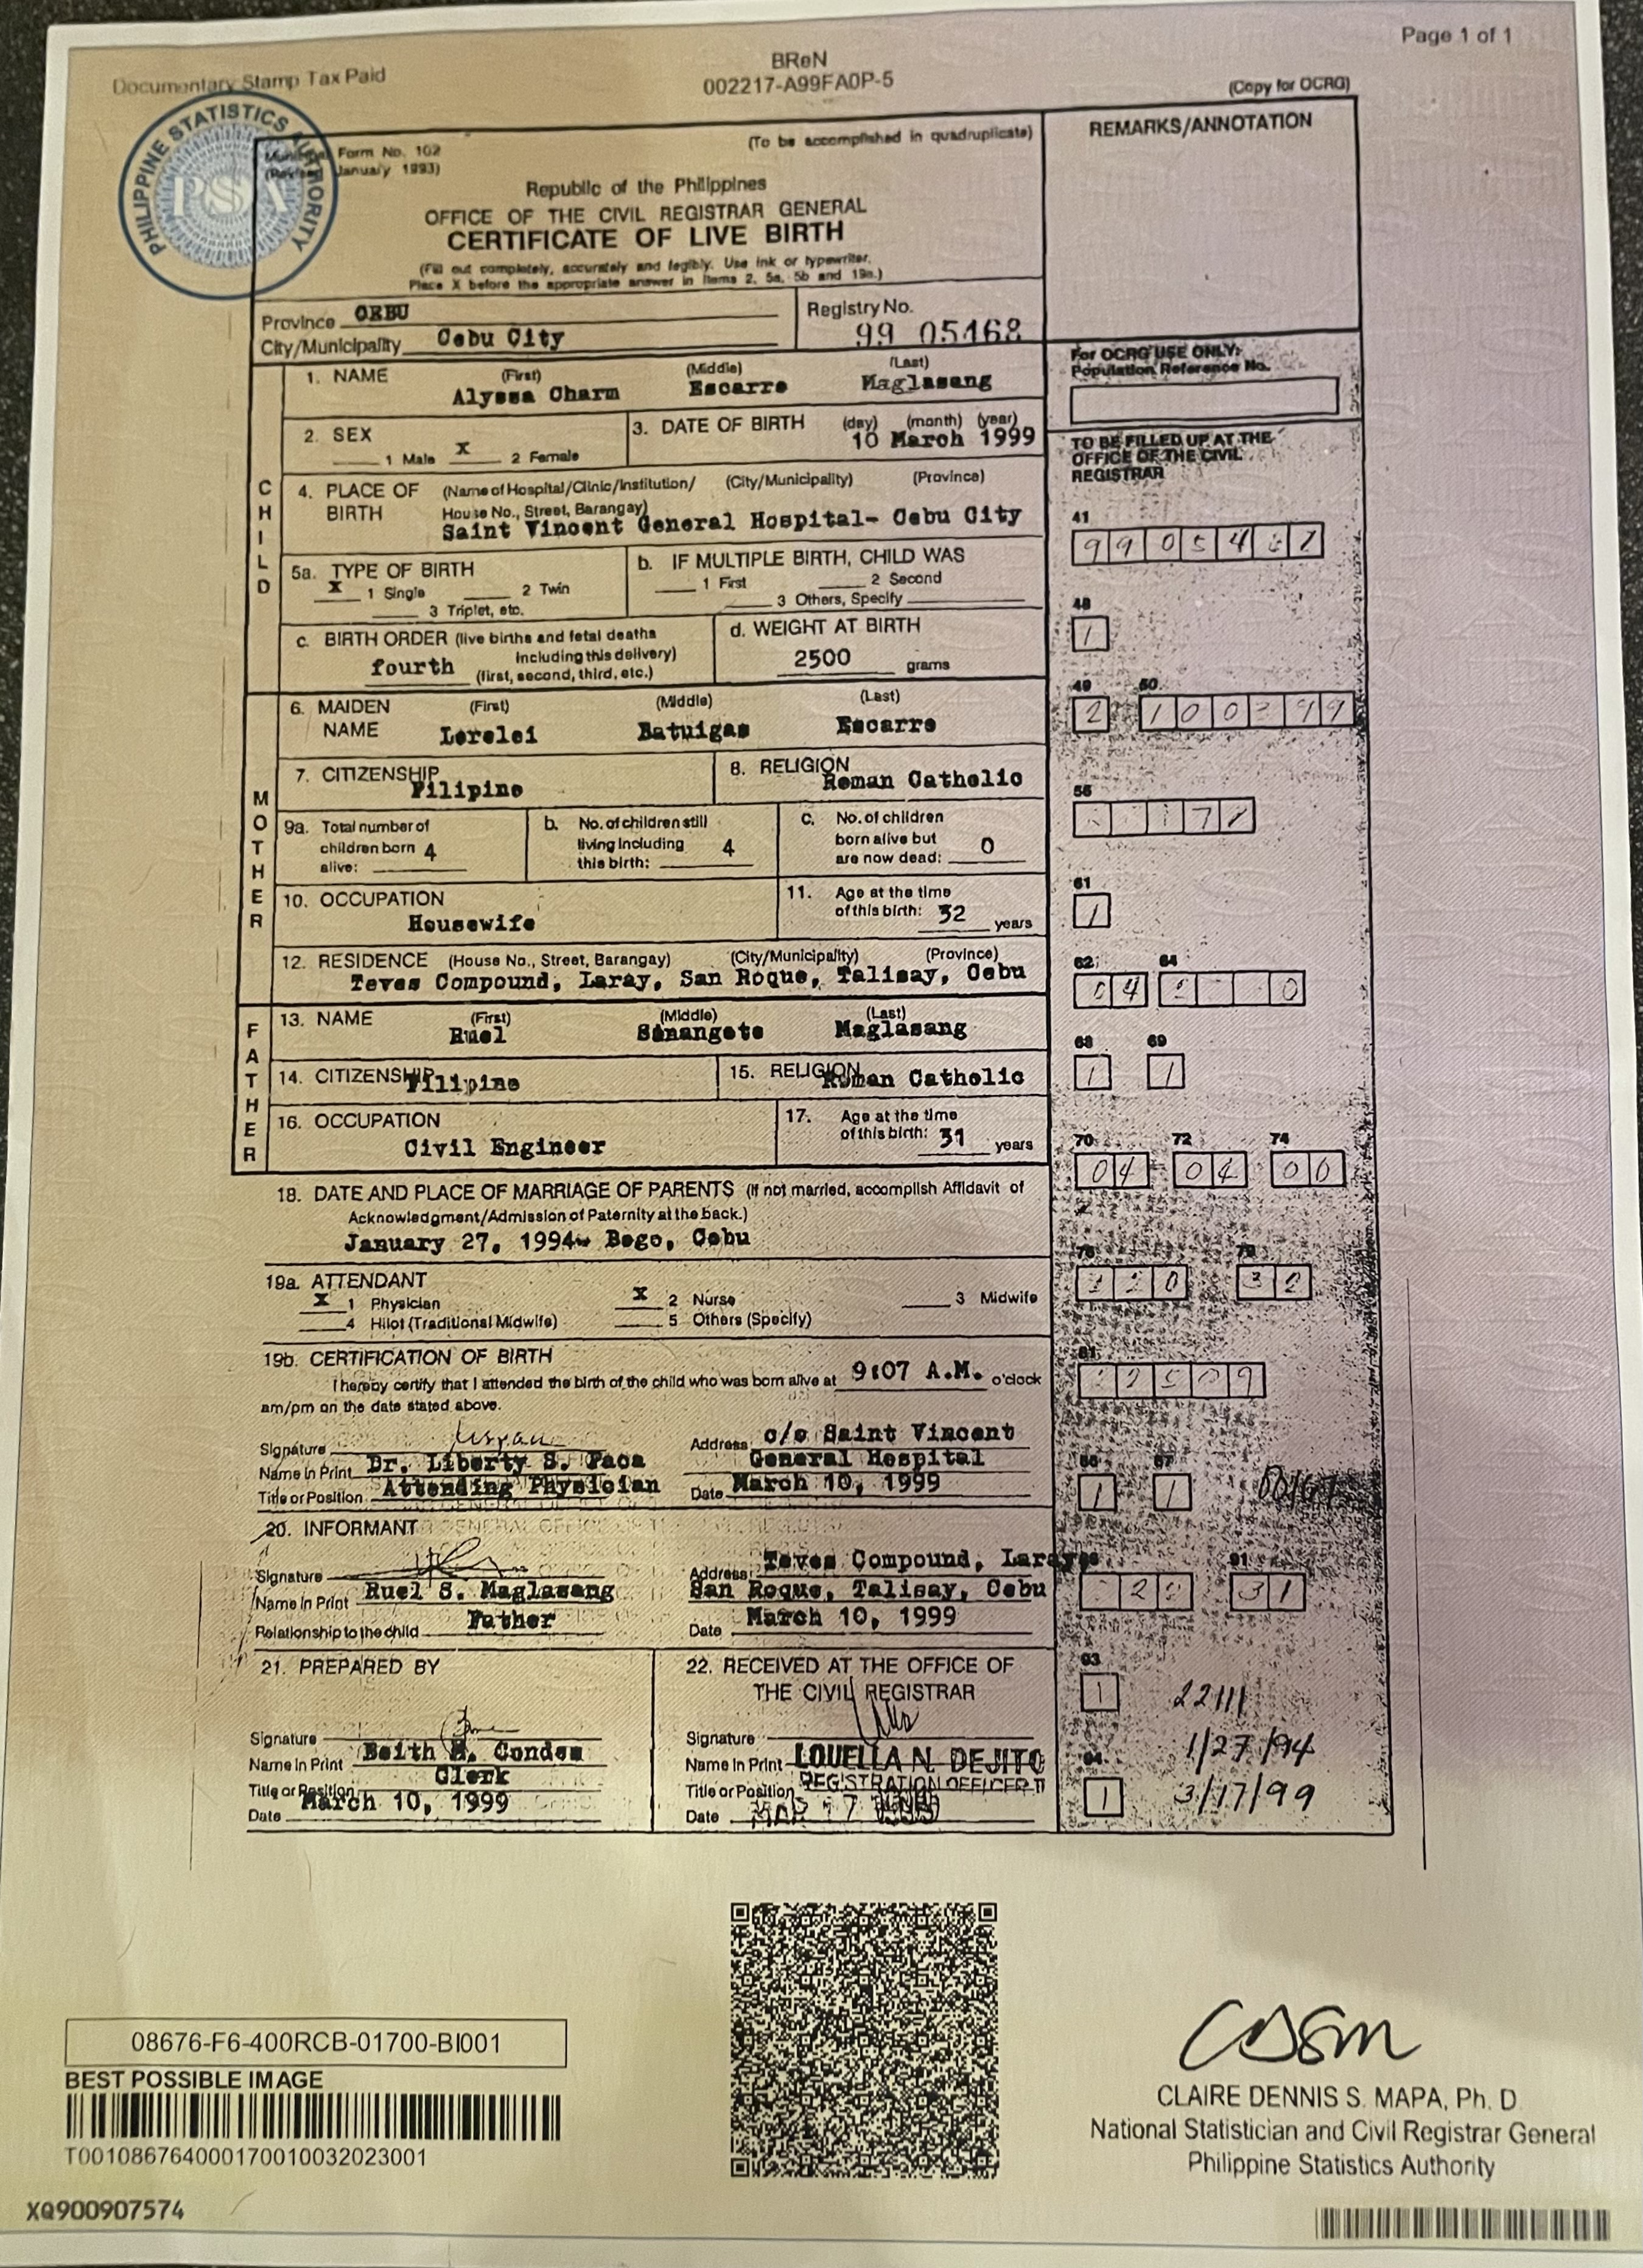 Page 1 of 1
Documentary Stamp Tax Paid
BReN
002217-A99FA0P-5
(Copy for OCRG)
PHILIPPINE STATISTICS AUTHORITY
PSA
Municipal Form No. 102
(Revised January 1993)
(To be accomplished in quadruplicate)
REMARKS/ANNOTATION
Republic of the Philippines
OFFICE OF THE CIVIL REGISTRAR GENERAL
CERTIFICATE OF LIVE BIRTH
(Fill out completely, accurately and legibly. Use ink or typewriter.
Place X before the appropriate answer in items 2, 5a, 5b and 19a.)
Province CEBU
City/Municipality Cebu City
Registry No.
99 05468
For OCRG USE ONLY:
Population Reference No.
CHILD
1. NAME (First) (Middle) (Last)
Alyssa Charm Escarro Maglasang
2. SEX
1 Male X 2 Female
3. DATE OF BIRTH (day) (month) (year)
10 March 1999
TO BE FILLED UP AT THE
OFFICE OF THE CIVIL
REGISTRAR
4. PLACE OF BIRTH (Name of Hospital/Clinic/Institution/ (City/Municipality) (Province)
House No., Street, Barangay)
Saint Vincent General Hospital- Cebu City
41
5a. TYPE OF BIRTH
X 1 Single 2 Twin
3 Triplet, etc.
b. IF MULTIPLE BIRTH, CHILD WAS
1 First 2 Second
3 Others, Specify
c. BIRTH ORDER (live births and fetal deaths
including this delivery)
fourth (first, second, third, etc.)
d. WEIGHT AT BIRTH
2500 grams
48
1
MOTHER
6. MAIDEN NAME (First) (Middle) (Last)
Lorelei Batuigas Escarro
49 50
2
7. CITIZENSHIP
Filipino
8. RELIGION
Roman Catholic
9a. Total number of
children born 4
alive:
b. No. of children still
living including 4
this birth:
c. No. of children
born alive but 0
are now dead:
10. OCCUPATION
Housewife
11. Age at the time
of this birth: 32 years
61
1
12. RESIDENCE (House No., Street, Barangay) (City/Municipality) (Province)
Teves Compound, Laray, San Roque, Talisay, Cebu
62 64
04
FATHER
13. NAME (First) (Middle) (Last)
Ruel Maglasang
14. CITIZENSHIP
Filipino
15. RELIGION
Roman Catholic
68 69
1 1
16. OCCUPATION
Civil Engineer
17. Age at the time
of this birth: 31 years
70 72 74
04 04 00
18. DATE AND PLACE OF MARRIAGE OF PARENTS (If not married, accomplish Affidavit of
Acknowledgment/Admission of Paternity at the back.)
January 27, 1994- Bogo, Cebu
19a. ATTENDANT
X 1 Physician X 2 Nurse 3 Midwife
4 Hilot (Traditional Midwife) 5 Others (Specify)
32
19b. CERTIFICATION OF BIRTH
I hereby certify that I attended the birth of the child who was born alive at 9:07 A.M. o'clock
am/pm on the date stated above.
Signature
Name in Print Dr. Liberty S. Paca
Title or Position Attending Physician
Address c/o Saint Vincent
General Hospital
Date March 10, 1999
1 1
20. INFORMANT
Signature
Name in Print Ruel S. Maglasang
Relationship to the child Father
Address Teves Compound, Laray,
San Roque, Talisay, Cebu
Date March 10, 1999
91
31
21. PREPARED BY
Signature
Name in Print Condes
Title or Position Clerk
Date March 10, 1999
22. RECEIVED AT THE OFFICE OF
THE CIVIL REGISTRAR
Signature
Name in Print LOUELLA N. DEJITO
Title or Position REGISTRATION OFFICER II
Date
93
1 22111
1/27/94
1 3/17/99
08676-F6-400RCB-01700-BI001
BEST POSSIBLE IMAGE
T001086764000170010032023001
XQ900907574
CLAIRE DENNIS S. MAPA, Ph. D.
National Statistician and Civil Registrar General
Philippine Statistics Authority